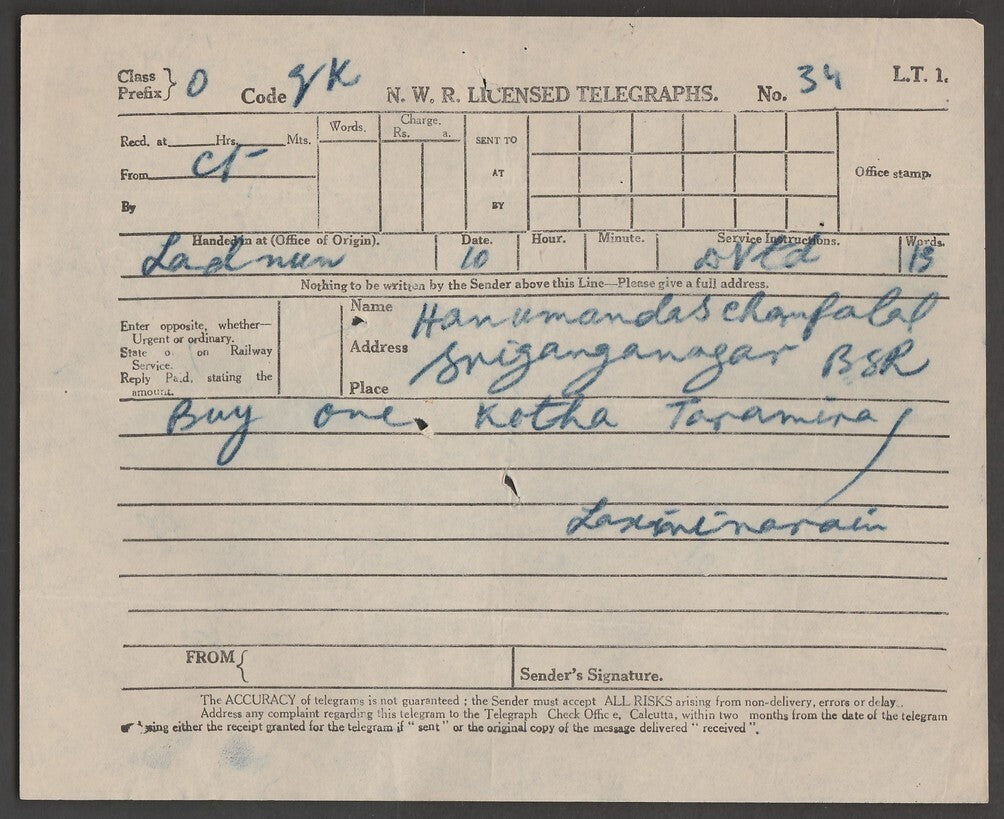 Class Prefix } O Code GK N. W. R. LICENSED TELEGRAPHS. No. 34 L.T. 1.
Recd. at Hrs. Mts. Words. Charge. Rs. a. SENT TO
From AT Office stamp.
By BY
Handed in at (Office of Origin). Date. Hour. Minute. Service Instructions. Words.
Ladnun 10 13
Nothing to be written by the Sender above this Line—Please give a full address.
Enter opposite, whether—
Urgent or ordinary.
State o on Railway
Service.
Reply Paid, stating the
amount.
Name Hanumandas Chanfalal
Address Sriganganagar BSR
Place
Buy one Kotha Taramira /
Laxminarain
FROM {
Sender's Signature.
The ACCURACY of telegrams is not guaranteed ; the Sender must accept ALL RISKS arising from non-delivery, errors or delay.
Address any complaint regarding this telegram to the Telegraph Check Office, Calcutta, within two months from the date of the telegram
sing either the receipt granted for the telegram if " sent " or the original copy of the message delivered " received ".